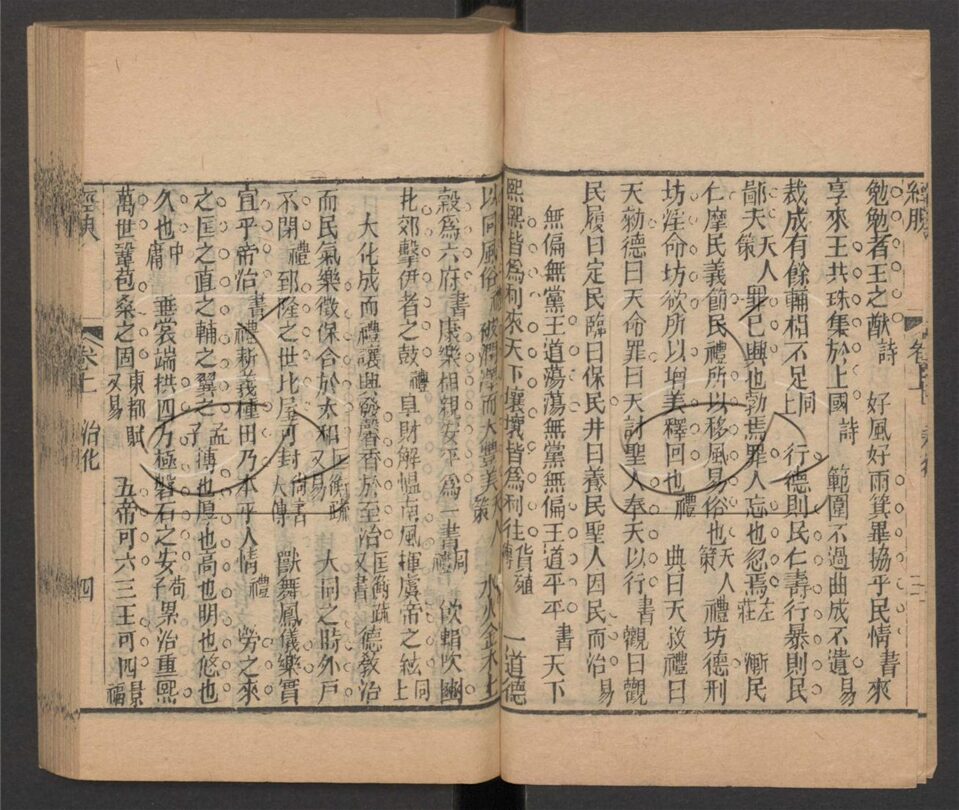 勉勉者王之猷詩　好風好雨箕畢協乎民情書來
享來王共珠集於上國詩　範圍不過曲成不遺易
裁成有餘輔相不足同上　行德則民仁壽行暴則民
鄙夭天人策　罪已興也勃焉罪人忘也忽焉左莊　漸民
仁摩民義節民禮所以移風易俗也天人策　禮坊德刑
坊淫命坊欲所以增美釋回也禮　典曰天敘禮曰
天勑德曰天命罪曰天討聖人奉天以行書　觀曰觀
民履曰定民臨曰保民井曰養民聖人因民而治易
無偏無黨王道蕩蕩無黨無偏王道平平書　天下
熙熙皆爲利來天下壤壤皆爲利往貨殖傳　一道德
以同風俗　被潤澤而大豐美天人策　水火金木土
穀爲六府書　康樂相親安平爲一書　龡豳
北郊擊伊耆之鼓禮　阜財解慍南風揮虞帝之絃同上
大化成而禮讓興馨香於至治　德敎治
而民氣樂徵保合於太和又易　大同之時外戶
不閉禮　郅隆之世比屋可封尚書大傳　獸舞鳳儀樂賓
宜乎帝治書　禮耕義種田乃本乎人情禮　勞之來
之匡之直之輔之翼之孟子　博也厚也高也明也悠也
久也中庸　垂裳端拱四方極磐石之安荀子　累治重熙
萬世鞏苞桑之固東都賦又易　五帝可六三王可四景福
卷上　治化　四